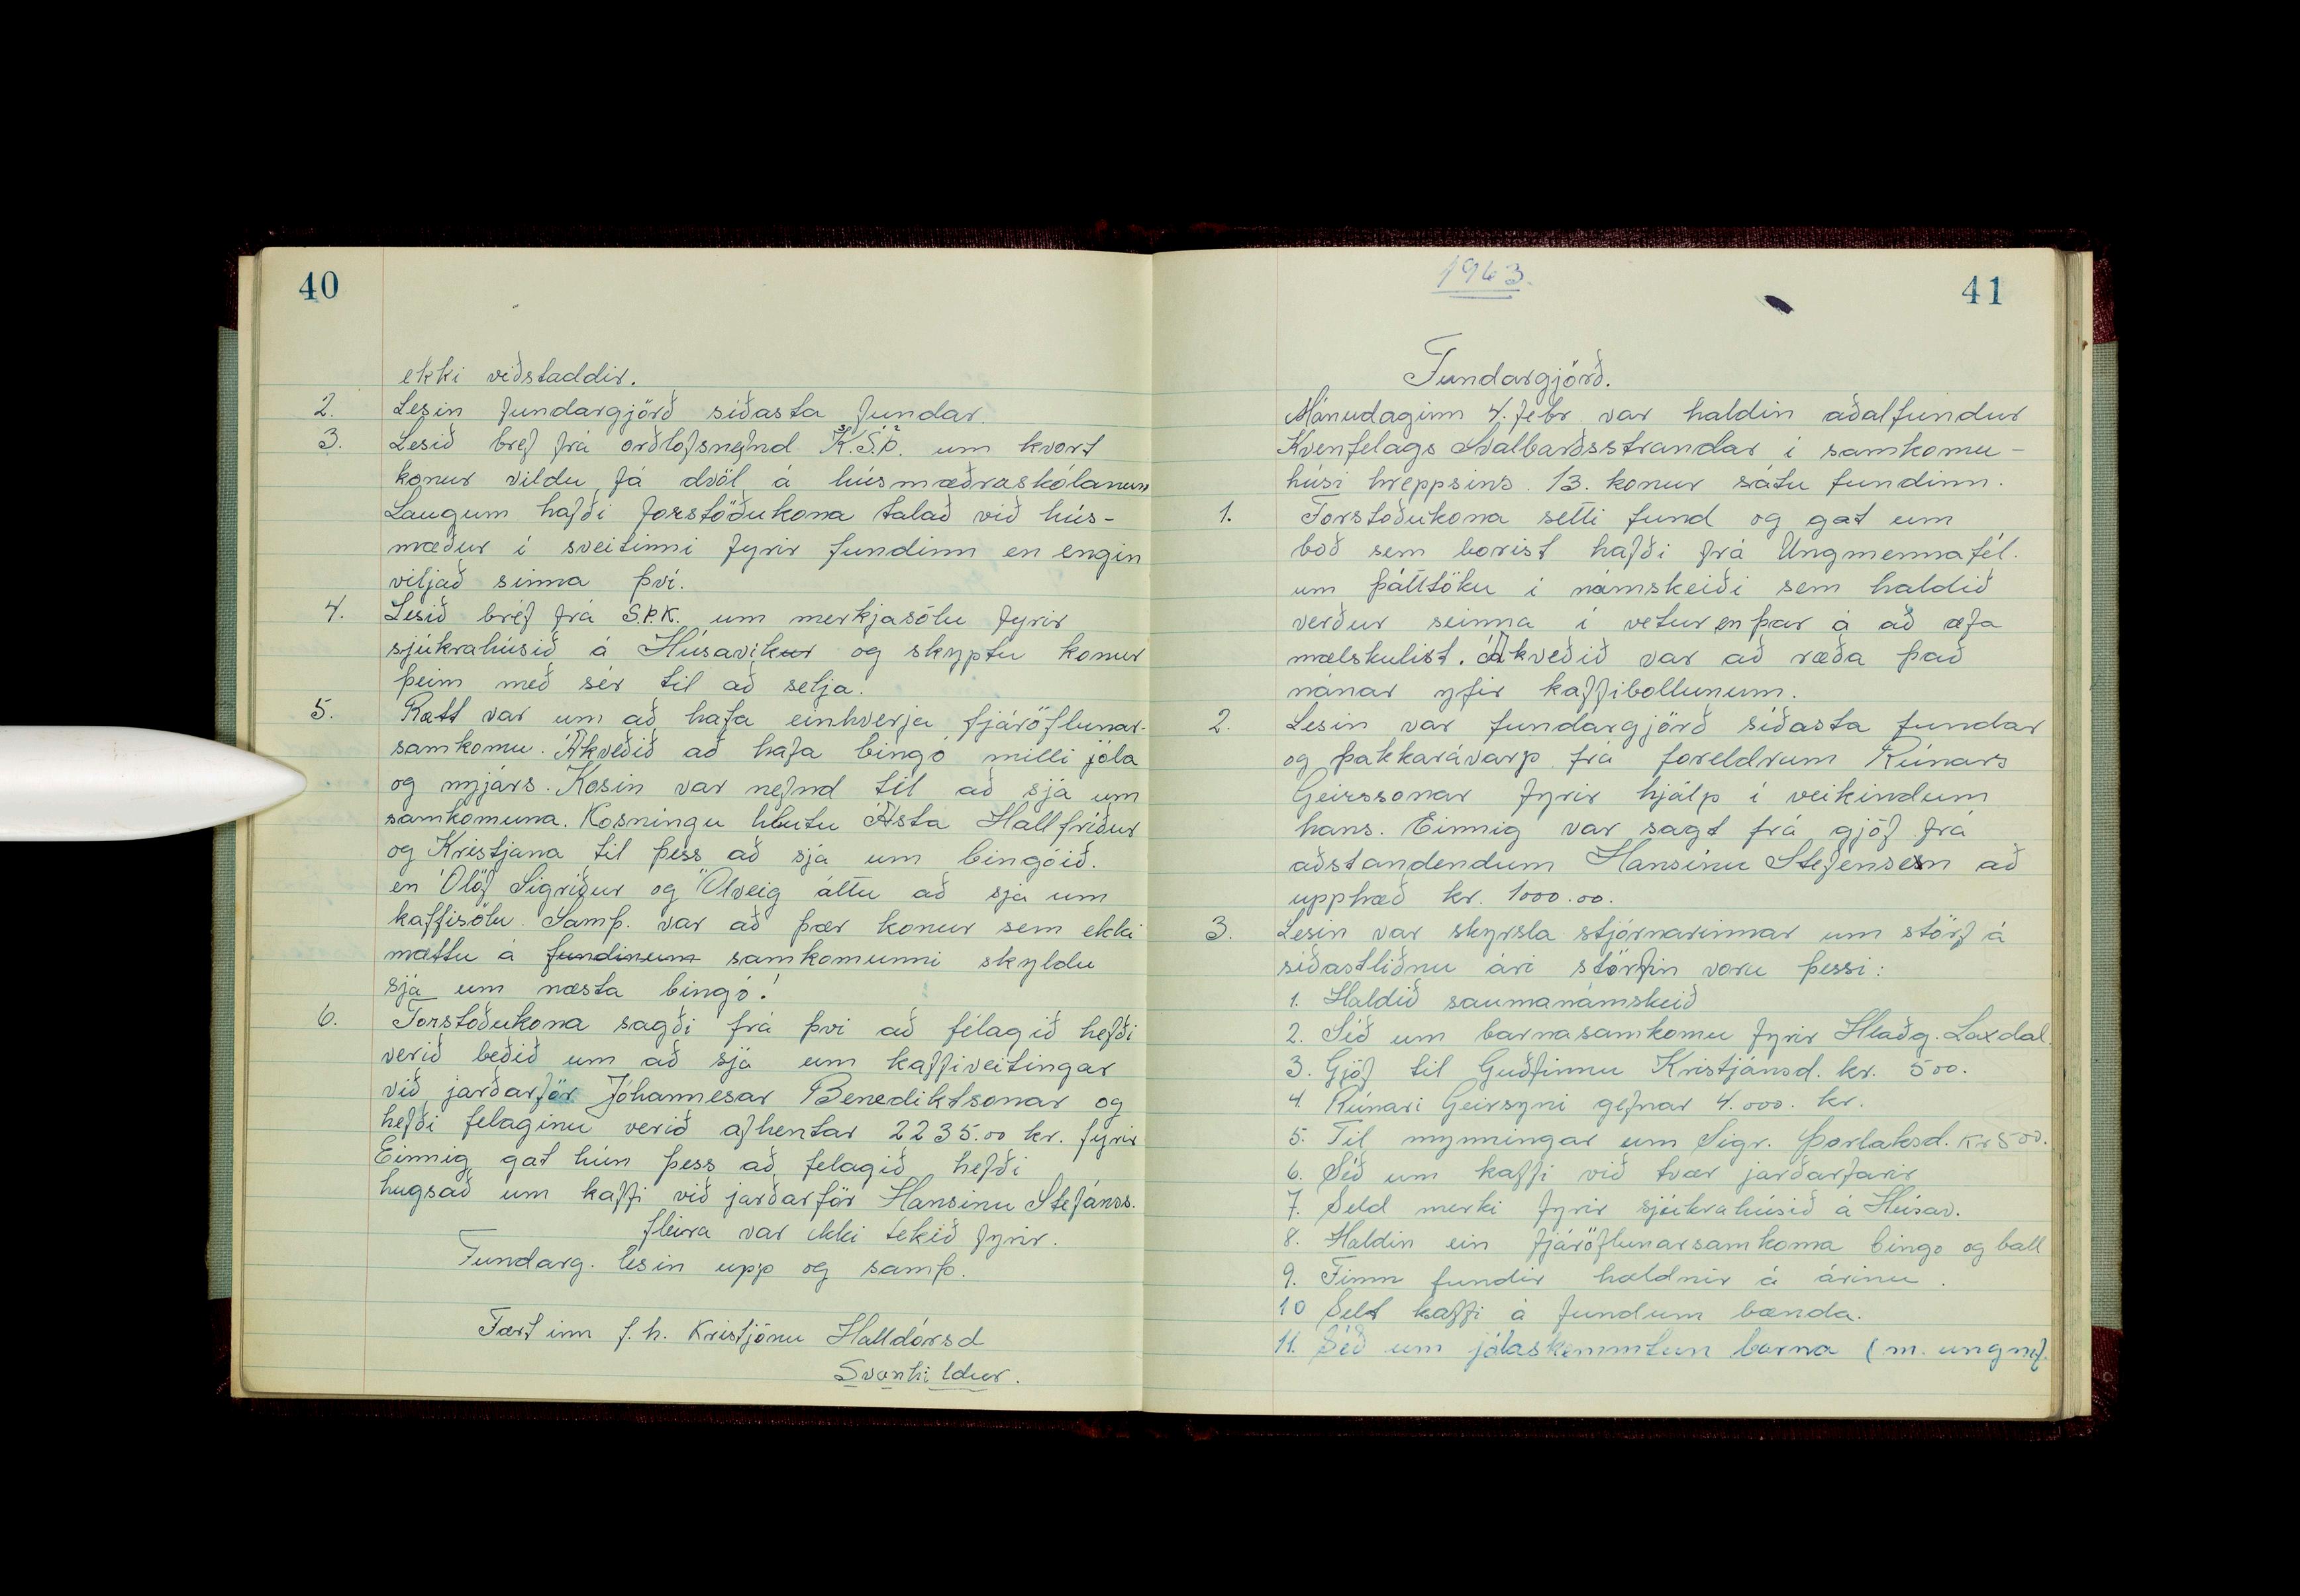 40
ekki viðstaddir.
2. Lesin fundargjörð síðasta fundar.
3. Lesið bref frá orðlofsnefnd K.S.Þ. um hvort
konur vildu fá dvöl á húsmæðraskólanum
Laugum hafði forstöðukona talað við hús-
mæður í sveitinni fyrir fundinn en engin
viljað sinna því.
4. Lesið bréf frá S.Þ.K. um merkjasölu fyrir
sjúkrahúsið á Húsavíkur og skyptu konur
þeim með sér til að selja.
5. Rætt var um að hafa einhverja fjáröflunar-
samkomu. Ákveðið að hafa bingó milli jóla
og nyjárs. Kosin var nefnd til að sjá um
samkomuna. Kosningu hlutu Ásta Hallfríður
og Kristjana til þess að sjá um bingóið.
en Ólöf Sigríður og Ölveig áttu að sjá um
kaffisölu. Samþ. var að þær konur sem ekki
mættu á fundinum samkomunni skyldu
sjá um næsta bingó!
6. Forstöðukona sagði frá því að félagið hefði
verið beðið um að sjá um kaffiveitingar
við jarðarför Jóhannesar Benediktsonar og
hefði felaginu verið afhentar 2235.00 kr. fyrir
Einnig gat hún þess að felagið hefði
hugsað um kaffi við jarðarför Hansinu Stefáns.
fleira var ekki tekið fyrir.
Fundarg. lesin upp og samþ.
Fært inn f.h. Kristjönu Halldórsd
Svanhildur.
1963.
41
Fundargjörð.
Mánudaginn 4. febr var haldin aðalfundur
Kvenfelags Svalbarðsstrandar í samkomu-
húsi hreppsins. 13. konur sátu fundinn.
1. Forstöðukona setti fund og gat um
boð sem borist hafði frá Ungmennafél.
um þátttöku í námskeiði sem haldið
verður seinna í vetur en þar á að æfa
mælskulist. Ákveðið var að ræða það
nánar yfir kaffibollunum.
2. Lesin var fundargjörð síðasta fundar
og þakkarávarp frá foreldrum Rúnars
Geirssonar fyrir hjálp í veikindum
hans. Einnig var sagt frá gjöf frá
aðstandendum Hansínu Stefensen að
upphæð kr. 1000.00.
3. Lesin var skyrsla stjórnarinnar um störf á
síðastliðnu ári störfin voru þessi:
1. Haldið saumanámskeið
2. Séð um barnasamkomu fyrir Hlaðg. Laxdal.
3. Gjöf til Guðfinnu Kristjánsd. kr. 500.
4. Rúnari Geirsyni gefnar 4.000. kr.
5. Til mynningar um Sigr. Þorlaksd. Kr 500.
6. Séð um kaffi við tvær jarðarfarir
7. Seld merki fyrir sjúkrahúsið á Húsav.
8. Haldin ein fjáröflunarsamkoma bingo og ball
9. Fimm fundir haldnir á árinu.
10 Selt kaffi á fundum bænda.
11. Séð um jólaskemmtun barna (m. ungmf.